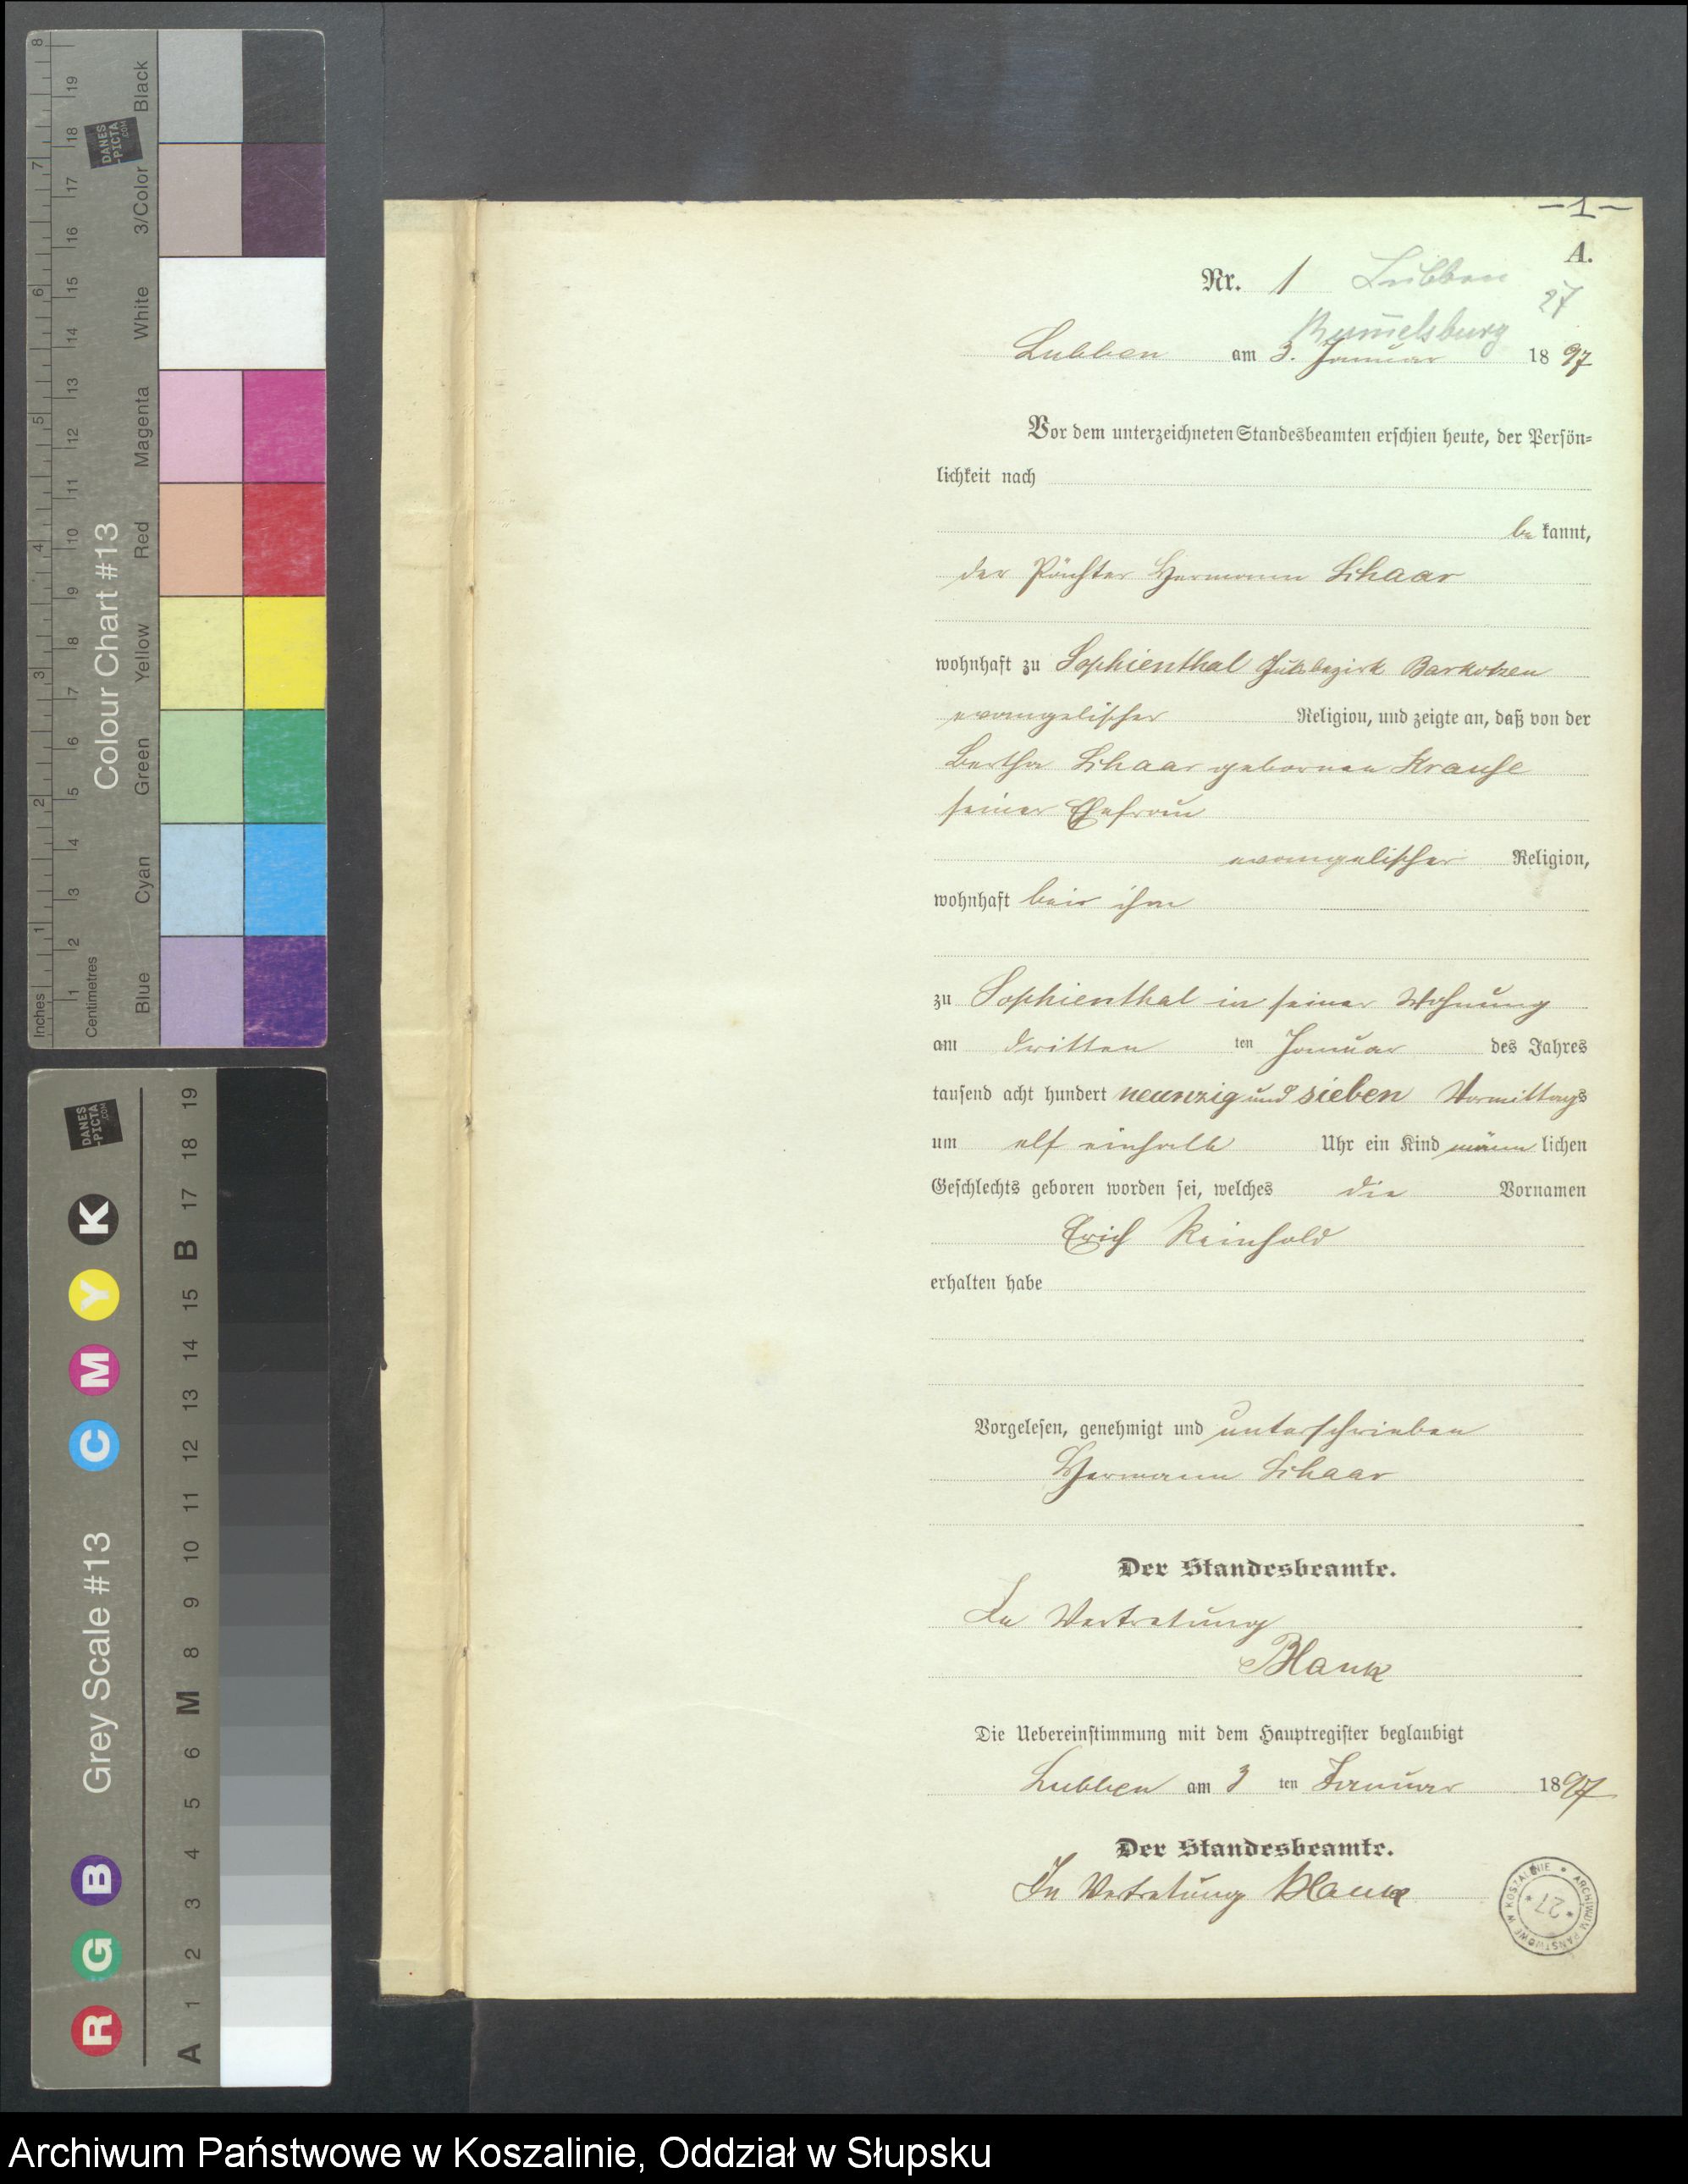 -1-
A.
Nr. 1 Lubben
27
Rummelsburg
Lubben am 3. Januar 1897
Vor dem unterzeichneten Standesbeamten erschien heute, der Persön=
lichkeit nach
be kannt,
der Pächter Hermann Schaar
wohnhaft zu Sophienthal Gutsbezirk Barkotzen
evangelischer Religion, und zeigte an, daß von der
Bertha Schaar geborenen Krause
seiner Ehefrau
evangelischer Religion,
wohnhaft bei ihm
zu Sophienthal in seiner Wohnung
am dritten ten Januar des Jahres
tausend acht hundert neunzig und sieben Vormittags
um elf einhalb Uhr ein Kind männ lichen
Geschlechts geboren worden sei, welches die Vornamen
Erich Reinhold
erhalten habe
Vorgelesen, genehmigt und unterschrieben
Hermann Schaar
Der Standesbeamte.
In Vertretung
Blank
Die Uebereinstimmung mit dem Hauptregister beglaubigt
Lubben am 3 ten Januar 1897
Der Standesbeamte.
In Vertretung Blank
ARCHIWUM PAŃSTWOWE W KOSZALINIE
* 27 *
Colour Chart #13
Blue Cyan Green Yellow Red Magenta White 3/Color Black
Inches 1 2 3 4 5 6 7 8
Centimetres 1 2 3 4 5 6 7 8 9 10 11 12 13 14 15 16 17 18 19
DANES
-PICTA
.COM
Grey Scale #13
R G B C M Y K
A 1 2 3 4 5 6 M 8 9 10 11 12 13 14 15 B 17 18 19
DANES
-PICTA
.COM
Archiwum Państwowe w Koszalinie, Oddział w Słupsku